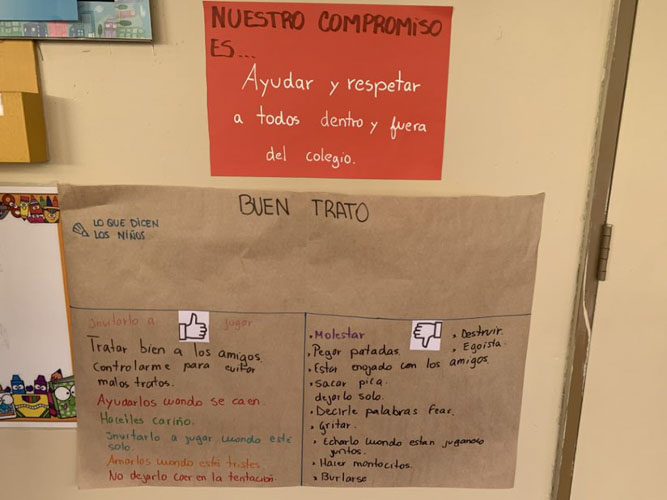 NUESTRO COMPROMISO
ES...
Ayudar y respetar
a todos dentro y fuera
del colegio.
BUEN TRATO
LO QUE DICEN
LOS NIÑOS
Invitarlo a jugar
Tratar bien a los amigos.
Controlarme para evitar
malos tratos.
Ayudarlos cuando se caen.
Hacerles cariño.
Invitarlo a jugar cuando esté
solo.
Amarlos cuando esté tristes
No dejarlo caer en la tentación.
• Molestar
• Destruir.
• Pegar patadas.
• Egoista.
• Estar enojado con los amigos.
• sacar pica.
dejarlo solo.
• Decirle palabras feas.
• gritar.
• Echarlo cuando estan jugando
juntos.
• Hacer montocitos.
• Burlarse